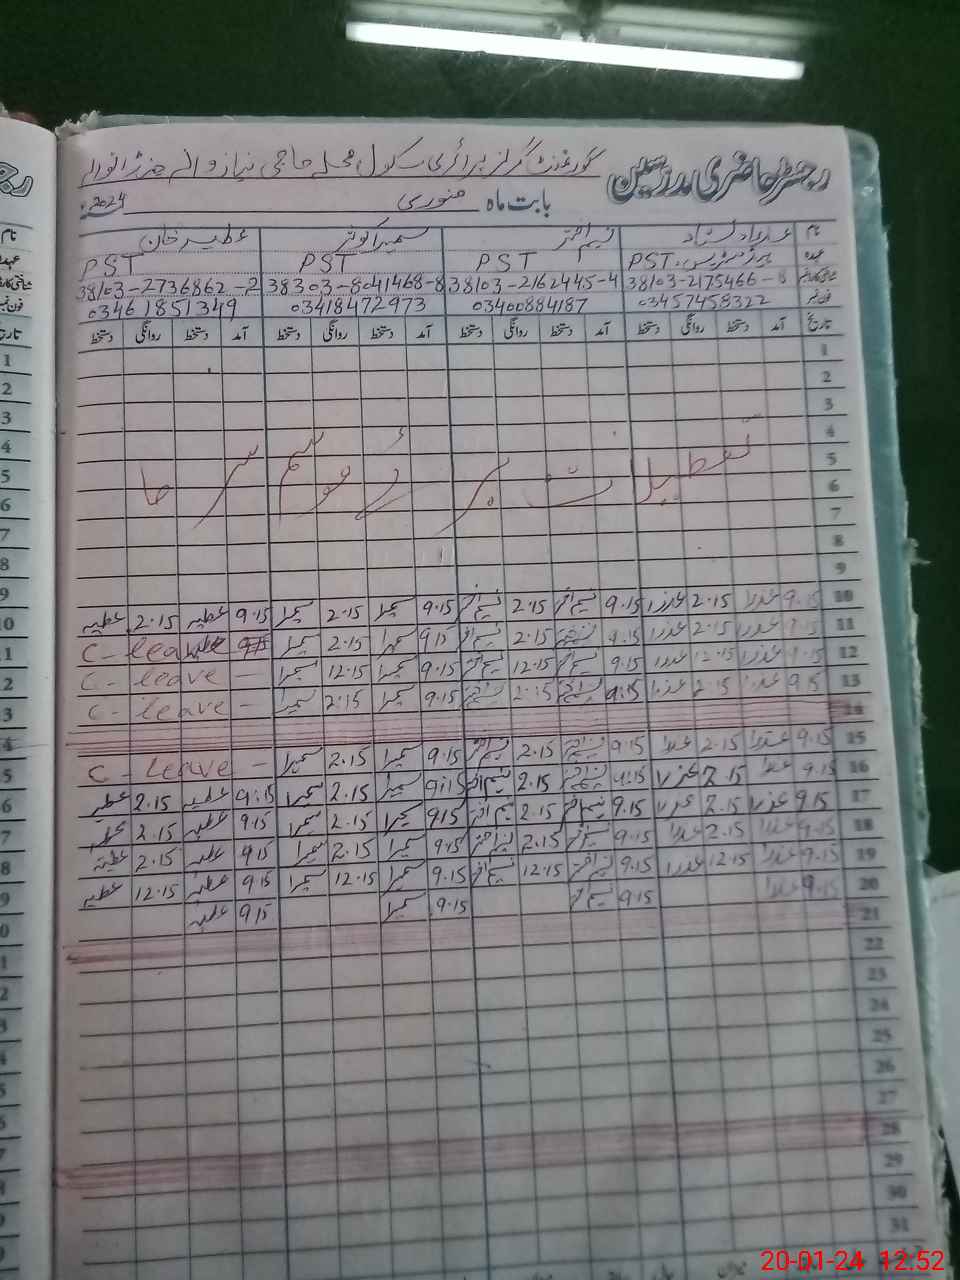 رجسٹر حاضری مدرسین گورنمنٹ گرلز پرائمری سکول محلہ حاجی نیاز والہ
بابت ماہ جنوری 2024
نام نسیم اختر سمیرا کوثر عطیہ خان
عہدہ PST PST PST PST
شناختی کارڈ نمبر 38103-2175466-8 38103-2162445-4 38303-8041468-8 38103-2736862-2
فون نمبر 03457458322 03400884187 03418472973 03461851349
تاریخ آمد دستخط روانگی دستخط آمد دستخط روانگی دستخط آمد دستخط روانگی دستخط آمد دستخط روانگی دستخط
1
2
3
4
5
6
7
8
9
تعطیلات موسم سرما
10 9.15 عذرا 2.15 عذرا 9.15 نسیم اختر 2.15 نسیم اختر 9.15 سمیرا 2.15 سمیرا 9.15 عطیہ 2.15 عطیہ
11 9.15 عذرا 2.15 عذرا 9.15 نسیم اختر 2.15 نسیم اختر 9.15 سمیرا 2.15 سمیرا C-leave
12 9.15 عذرا 12.15 عذرا 9.15 نسیم اختر 12.15 نسیم اختر 9.15 سمیرا 12.15 سمیرا C-leave -
13 9.15 عذرا 2.15 عذرا 9.15 نسیم اختر 2:15 نسیم اختر 9.15 سمیرا 2:15 سمیرا C-leave -
14
15 9.15 عذرا 2.15 عذرا 9.15 نسیم اختر 2.15 نسیم اختر 9.15 سمیرا 2.15 سمیرا C-leave -
16 9.15 عذرا 2.15 عذرا 9.15 نسیم اختر 2.15 نسیم اختر 9.15 سمیرا 2.15 سمیرا 9.15 عطیہ 2.15 عطیہ
17 9.15 عذرا 2.15 عذرا 9.15 نسیم اختر 2.15 نسیم اختر 9.15 سمیرا 2.15 سمیرا 9.15 عطیہ 2.15 عطیہ
18 9.15 عذرا 2.15 عذرا 9.15 نسیم اختر 2.15 نسیم اختر 9.15 سمیرا 2.15 سمیرا 9.15 عطیہ 2.15 عطیہ
19 9.15 عذرا 12.15 عذرا 9.15 نسیم اختر 12.15 نسیم اختر 9.15 سمیرا 12.15 سمیرا 9.15 عطیہ 12.15 عطیہ
20 9.15 عذرا 9.15 نسیم اختر 9.15 سمیرا 9.15 عطیہ
21
22
23
24
25
26
27
28
29
30
31
20-01-24 12:52